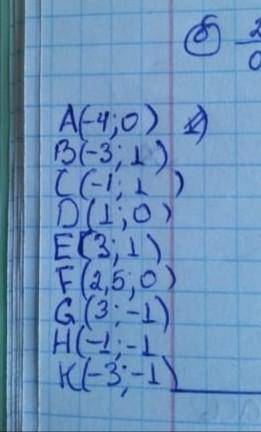 б) 2
A(-4;0)
B(-3;1)
C(-1;1)
D(1;0)
E(3;1)
F(2,5;0)
G(3;-1)
H(-1;-1
K(-3;-1)